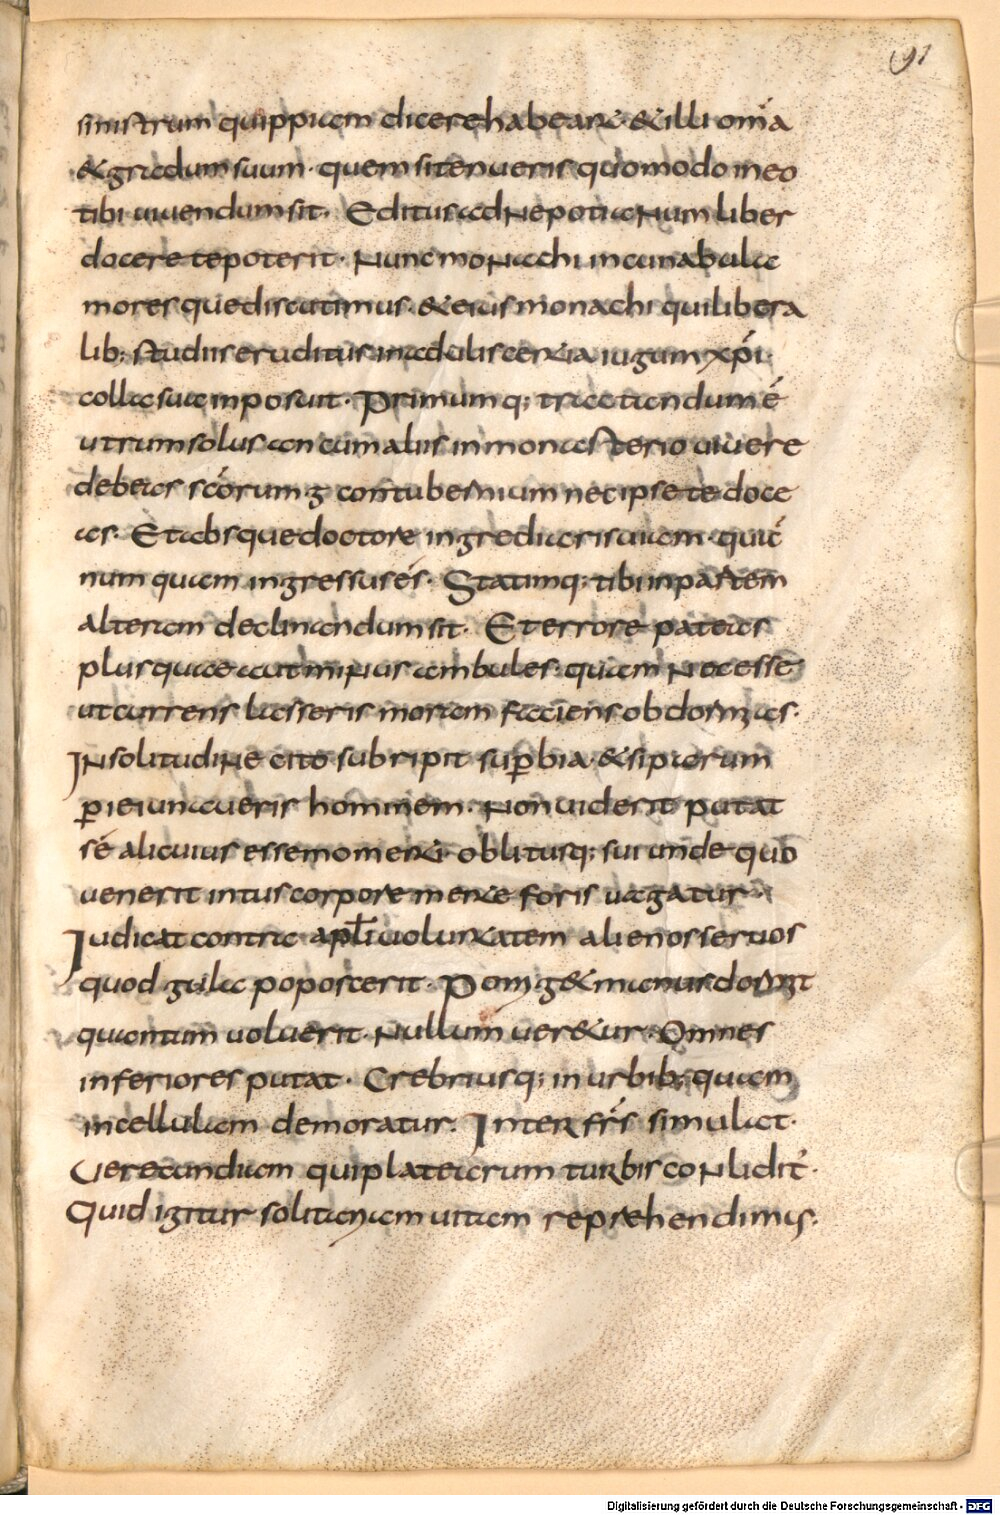 91
sinistrum quippiam dicere habeant & illi om̅a
& gradum suum· quem si tenueris quomodo in eo
tibi uiuendum sit· Editus ad Nepotianum liber
docere te poterit· Nunc monachi incunabula
moresque discutimus· & eius monachi qui libera
lib; studiis eruditus in aduliscentia iugum xp̅i
collae suae inposuit· Primumq; tractandum e̅
utrum solus an cum aliis in monasterio uiuere
debeas sc̅orum g̅ contubernium nec ipse te doce
as· Et absque doctore ingrediaris uiam· quā
num quam ingressus es· Statimq; tibi in partem
alteram declinandum sit· Et errore pateas
plus quae aut minus ambules· quam necesse
ut currens lasseris moram faciens obdormias·
In solitudine cito subripit sup̲bia· & si piorum
p̲ ieiunaueris hominem· Non uiderit putat
se alicuius esse momenti· oblitusq; sui unde quo
uenerit intus corpore mente foris uagatur·
Iudicat contra apl̅i uoluntatem alienos seruos
quod gula poposcerit· Porrig& manus dormit
quantum uoluerit· Nullum uer&ur· Omnes
inferiores putat· Crebriusq; in urbib; quam
in cellulam demoratur· Inter fr̅s simulat·
Uerecundiam qui platearum turbis conlidit·
Quid igitur solitariam uitam reprehendimus·
Digitalisierung gefördert durch die Deutsche Forschungsgemeinschaft - DFG